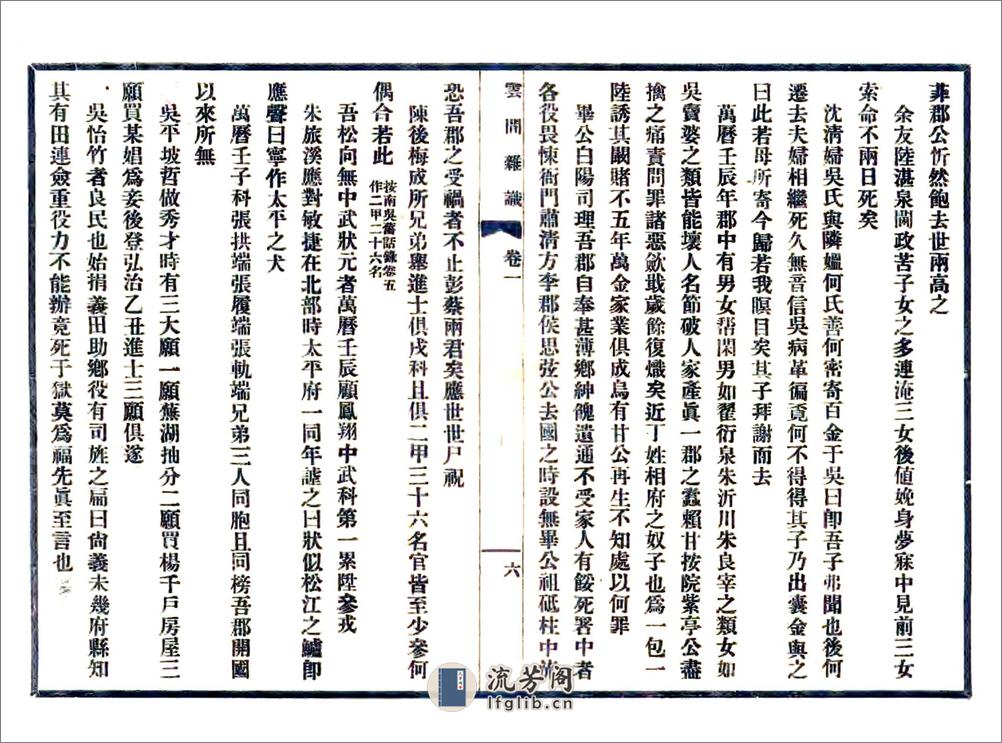 菲郡公忻然飽去世兩高之
余友陸湛泉閫政苦子女之多連淹三女後値娩身夢寐中見前三女
索命不兩日死矣
沈淸婦吳氏與隣嫗何氏善何密寄百金于吳曰卽吾子弗聞也後何
遷去夫婦相繼死久無音信吳病革徧覓何不得得其子乃出囊金與之
曰此若母所寄今歸若我瞑目矣其子拜謝而去
萬曆壬辰年郡中有男女幇閑男如翟衍泉朱沂川朱良宰之類女如
吳賣婆之類皆能壞人名節破人家產眞一郡之蠹賴甘按院紫亭公盡
擒之痛責問罪諸惡歛戢歲餘復熾矣近丁姓相府之奴子也爲一包一
陸誘其闞賭不五年萬金家業俱成烏有甘公再生不知處以何罪
畢公白陽司理吾郡自奉甚薄鄉紳餽遺通不受家人有餒死署中者
各役畏悚衙門肅淸方李郡侯思弦公去國之時設無畢公祖砥柱中流
雲間雜識
卷一
六
恐吾郡之受禍者不止彭蔡兩君矣應世世尸祝
陳後梅成所兄弟舉進士俱戌科且俱二甲三十六名官皆至少參何
偶合若此
按南吳舊話錄卷五
作二甲二十六名
吾松向無中武狀元者萬曆壬辰顧鳳翔中武科第一累陞參戎
朱旅溪應對敏捷在北部時太平府一同年謔之曰狀似松江之鱸卽
應聲曰寧作太平之犬
萬曆壬子科張拱端張履端張軌端兄弟三人同胞且同榜吾郡開國
以來所無
吳平坡哲做秀才時有三大願一願蕪湖抽分二願買楊千戶房屋三
願買某娼爲妾後登弘治乙丑進士三願俱遂
吳怡竹者良民也始捐義田助鄉役有司旌之扁曰尙義未幾府縣知
其有田連僉重役力不能辦竟死于獄莫爲福先眞至言也
流芳阁
lfglib.cn